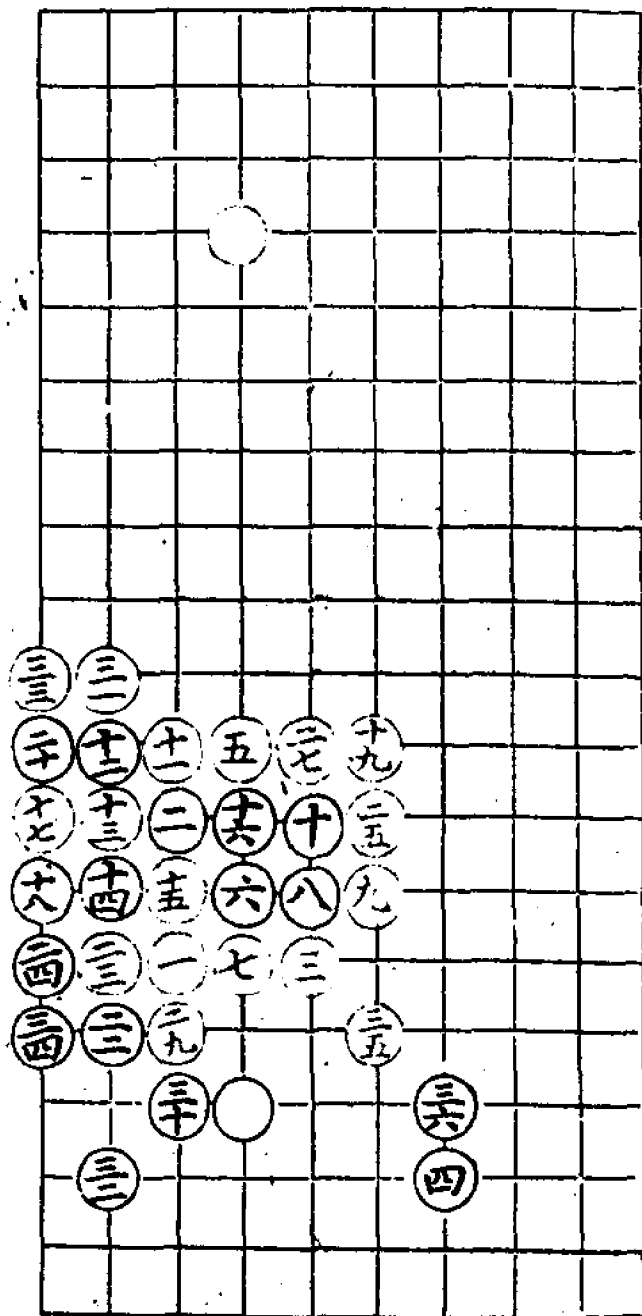 三三 三一
二十 十二 十一 五 二七 十九
十七 十三 二 十六 十 二五
十八 十四 十五 六 八 九
二四 二三 一 七 三
三四 二二 二九 三五
三十 三六
三二 四